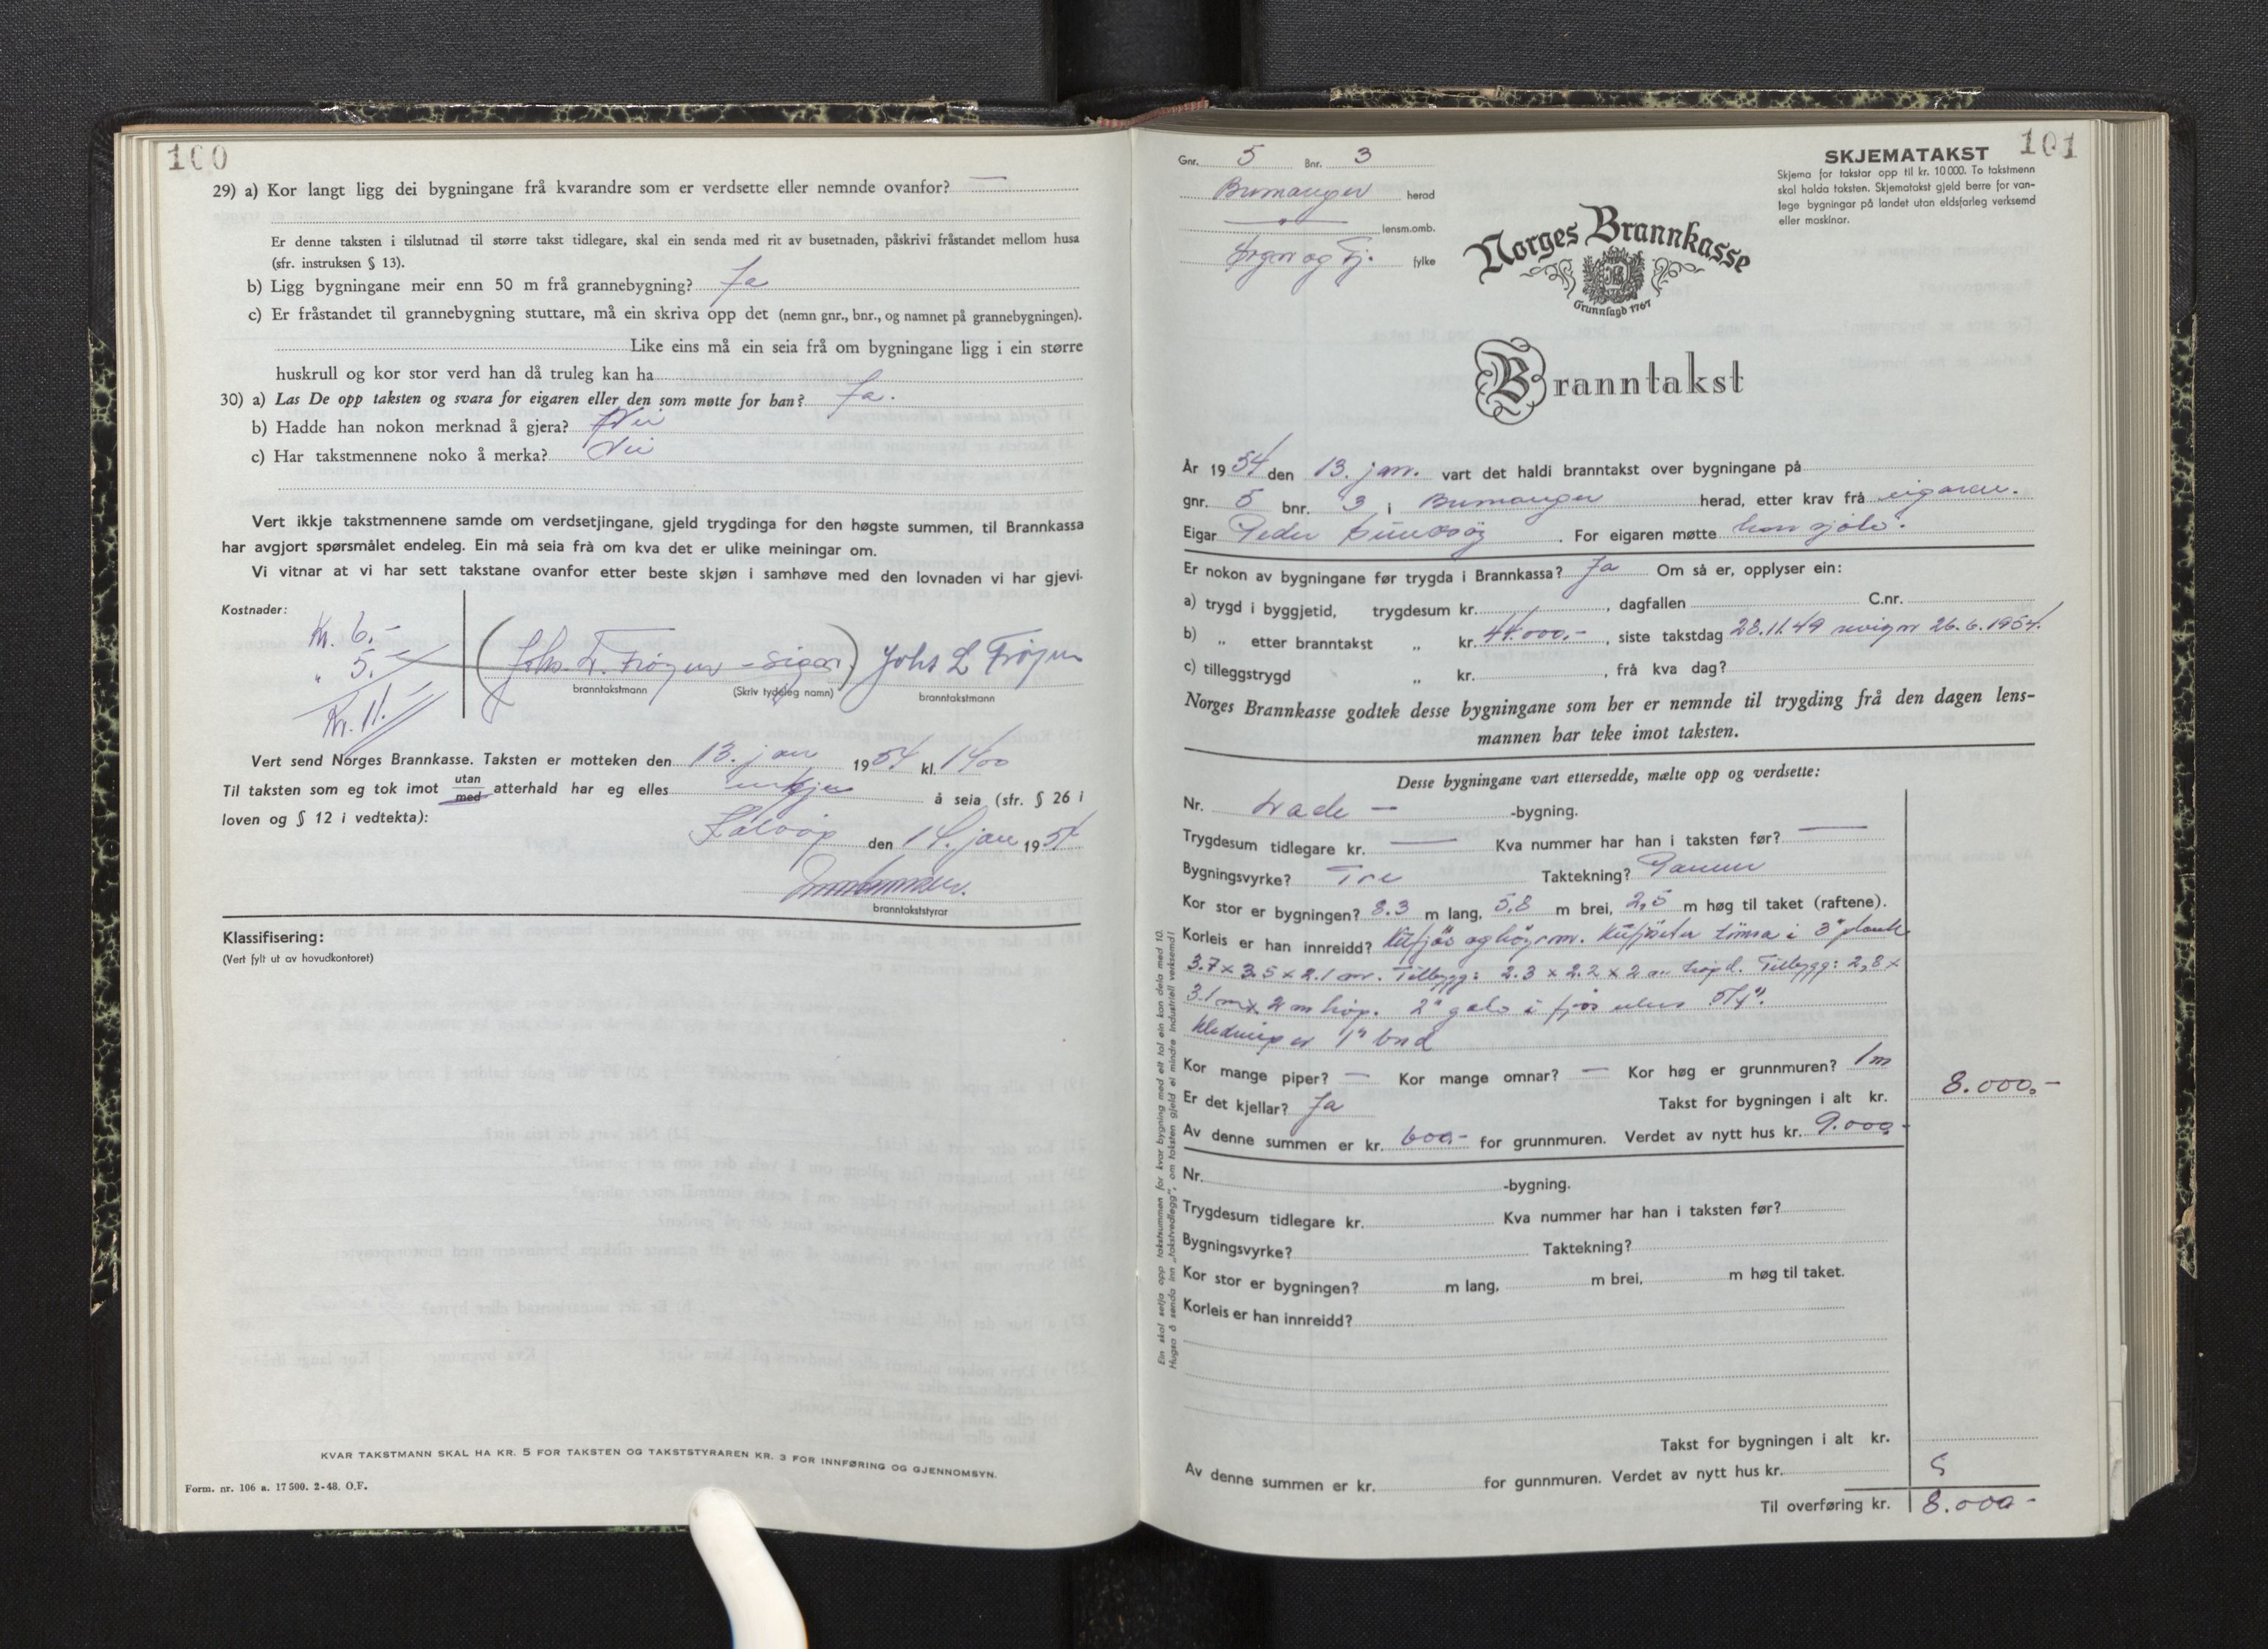 100
29) a) Kor langt ligg dei bygningane frå kvarandre som er verdsette eller nemnde ovanfor? —
Er denne taksten i tilslutnad til større takst tidlegare, skal ein senda med rit av busetnaden, påskrivi fråstandet mellom husa
(sfr. instruksen § 13).
b) Ligg bygningane meir enn 50 m frå grannebygning? Ja
c) Er fråstandet til grannebygning stuttare, må ein skriva opp det (nemn gnr., bnr., og namnet på grannebygningen).
Like eins må ein seia frå om bygningane ligg i ein større
huskrull og kor stor verd han då truleg kan ha
30) a) Las De opp taksten og svara for eigaren eller den som møtte for han? Ja.
b) Hadde han nokon merknad å gjera? Nei
c) Har takstmennene noko å merka? Nei
Vert ikkje takstmennene samde om verdsetjingane, gjeld trygdinga for den høgste summen, til Brannkassa
har avgjort spørsmålet endeleg. Ein må seia frå om kva det er ulike meiningar om.
Vi vitnar at vi har sett takstane ovanfor etter beste skjøn i samhøve med den lovnaden vi har gjevi.
Kostnader:
Kr. 6.-
" 5.-
Kr. 11.-
(Johs L. Frøyen - sign.) Johs L Frøyen
branntakstmann (Skriv tydeleg namn) branntakstmann
Vert send Norges Brannkasse. Taksten er motteken den 13. jan 1954 kl. 1400
Til taksten som eg tok imot utan/med atterhald har eg elles å seia (sfr. § 26 i
loven og § 12 i vedtekta):
den 14. jan 1954
branntakststyrar
Klassifisering:
(Vert fylt ut av hovudkontoret)
KVAR TAKSTMANN SKAL HA KR. 5 FOR TAKSTEN OG TAKSTSTYRAREN KR. 3 FOR INNFØRING OG GJENNOMSYN.
Form. nr. 106 a. 17500. 2-48. O.F.
101
Gnr. 5 Bnr. 3
Bremanger herad
— " — lensm.omb.
Sogn og Fj. fylke
SKJEMATAKST
Skjema for takstar opp til kr. 10000. To takstmenn
skal halda taksten. Skjematakst gjeld berre for van-
lege bygningar på landet utan eldsfarleg verksemd
eller maskinar.
Norges Brannkasse
Grunnlagd 1767
Branntakst
År 1954 den 13. jan. vart det haldi branntakst over bygningane på
gnr. 5 bnr. 3 i Bremanger herad, etter krav frå eigaren.
Eigar Peder For eigaren møtte han sjølv.
Er nokon av bygningane før trygda i Brannkassa? Ja Om så er, opplyser ein:
a) trygd i byggjetid, trygdesum kr. , dagfallen C.nr.
b) „ etter branntakst „ kr. 44.000,- , siste takstdag 28.11.49 26.6.1954.
c) tilleggstrygd „ kr. , frå kva dag?
Norges Brannkasse godtek desse bygningane som her er nemnde til trygding frå den dagen lens-
mannen har teke imot taksten.
Desse bygningane vart ettersedde, mælte opp og verdsette:
Nr. Løade — -bygning.
Trygdesum tidlegare kr. — Kva nummer har han i taksten før? —
Bygningsvyrke? Tre Taktekning? Panner
Kor stor er bygningen? 8.3 m lang, 5,8 m brei, 2,5 m høg til taket (raftene).
Korleis er han innreidd? Kufjøs og høyrom. Kufjøset er tømra i 3" plank
3.7 x 3.5 x 2.1 m. Tilbygg: 2.3 x 2.2 x 2 m høgd. Tilbygg: 2,8 x
3.1 m x 2 m høg. 2" golv i fjøs elles 5/4".
kledning er 1" bord
Kor mange piper? — Kor mange omnar? — Kor høg er grunnmuren? 1 m
Er det kjellar? Ja Takst for bygningen i alt kr. 8.000,-
Av denne summen er kr. 600.- for grunnmuren. Verdet av nytt hus kr. 9.000.-
Nr. -bygning.
Trygdesum tidlegare kr. Kva nummer har han i taksten før?
Bygningsvyrke? Taktekning?
Kor stor er bygningen? m lang, m brei, m høg til taket.
Korleis er han innreidd?
Takst for bygningen i alt kr.
Av denne summen er kr. for gunnmuren. Verdet av nytt hus kr.
Til overføring kr. 8.000-
Ein skal setja opp takstsummen for kvar bygning med eit tal ein kan dela med 10.
Hugsa å senda inn „takstvedlegg", om taksten gjeld ei mindre industriell verksemd!